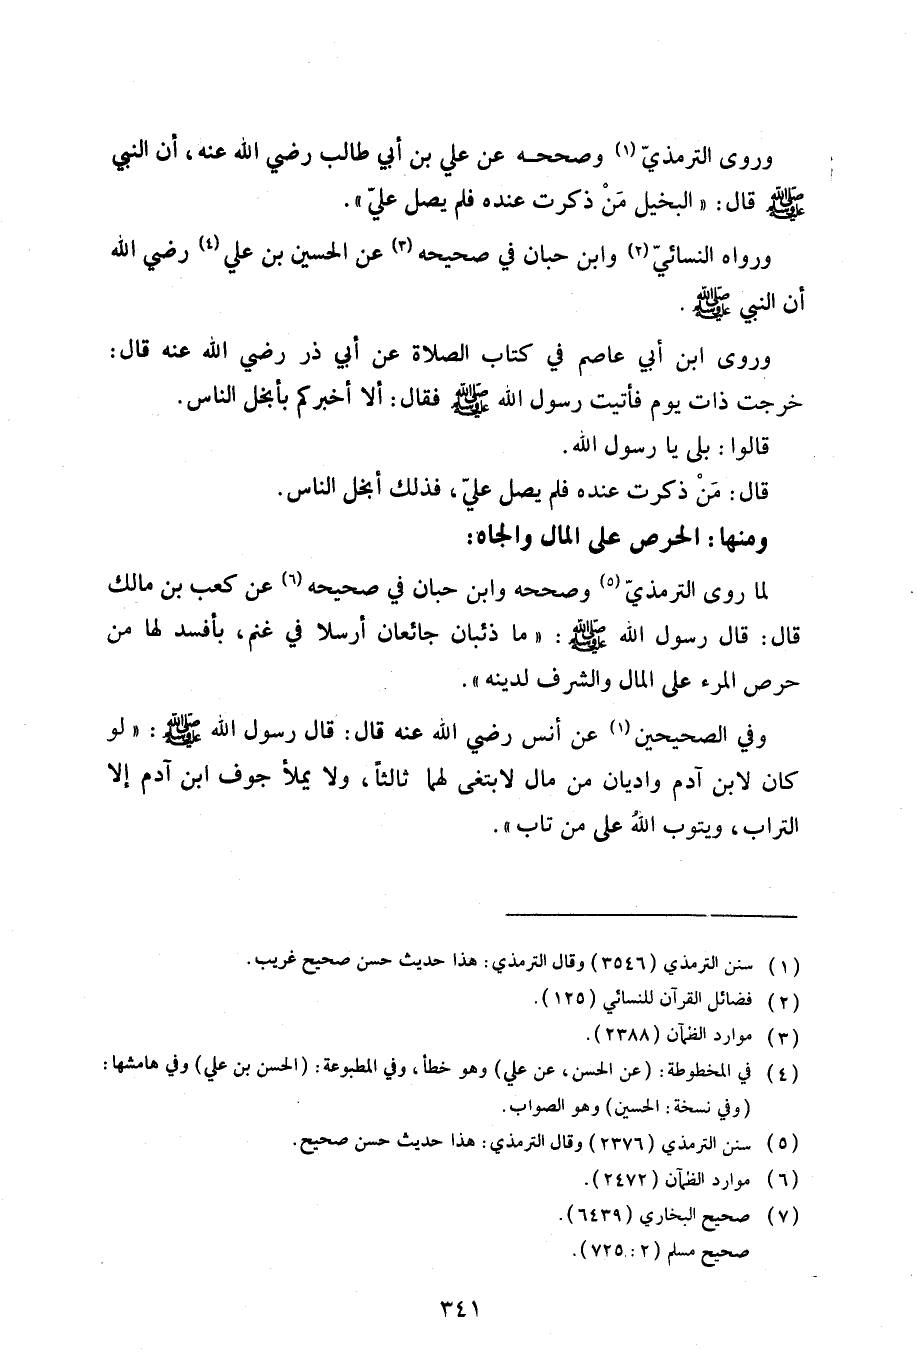 وروى الترمذيّ (١) وصححه عن علي بن أبي طالب رضي الله عنه، أن النبي
ﷺ قال: « البخيل مَنْ ذكرت عنده فلم يصل عليّ ».
ورواه النسائيّ (٢) وابن حبان في صحيحه (٣) عن الحسين بن علي (٤) رضي الله
أن النبي ﷺ .
وروى ابن أبي عاصم في كتاب الصلاة عن أبي ذر رضي الله عنه قال:
خرجت ذات يوم فأتيت رسول الله ﷺ فقال: ألا أخبركم بأبخل الناس.
قالوا: بلى يا رسول الله.
قال: مَنْ ذكرت عنده فلم يصل عليّ، فذلك أبخل الناس.
ومنها: الحرص على المال والجاه:
لما روى الترمذيّ (٥) وصححه وابن حبان في صحيحه (٦) عن كعب بن مالك
قال: قال رسول الله ﷺ : « ما ذئبان جائعان أرسلا في غنم، بأفسد لها من
حرص المرء على المال والشرف لدينه ».
وفي الصحيحين (١) عن أنس رضي الله عنه قال: قال رسول الله ﷺ : « لو
كان لابن آدم واديان من مال لابتغى لهما ثالثاً، ولا يملأ جوف ابن آدم إلا
التراب، ويتوب اللهُ على من تاب ».
(١) سنن الترمذي (٣٥٤٦) وقال الترمذي: هذا حديث حسن صحيح غريب.
(٢) فضائل القرآن للنسائي (١٢٥).
(٣) موارد الظمآن (٢٣٨٨).
(٤) في المخطوطة: (عن الحسن، عن علي) وهو خطأ، وفي المطبوعة: (الحسن بن علي) وفي هامشها:
(وفي نسخة: الحسين) وهو الصواب.
(٥) سنن الترمذي (٢٣٧٦) وقال الترمذي: هذا حديث حسن صحيح.
(٦) موارد الظمآن (٢٤٧٢).
(٧) صحيح البخاري (٦٤٣٩).
صحيح مسلم (٢: ٧٢٥).
٣٤١